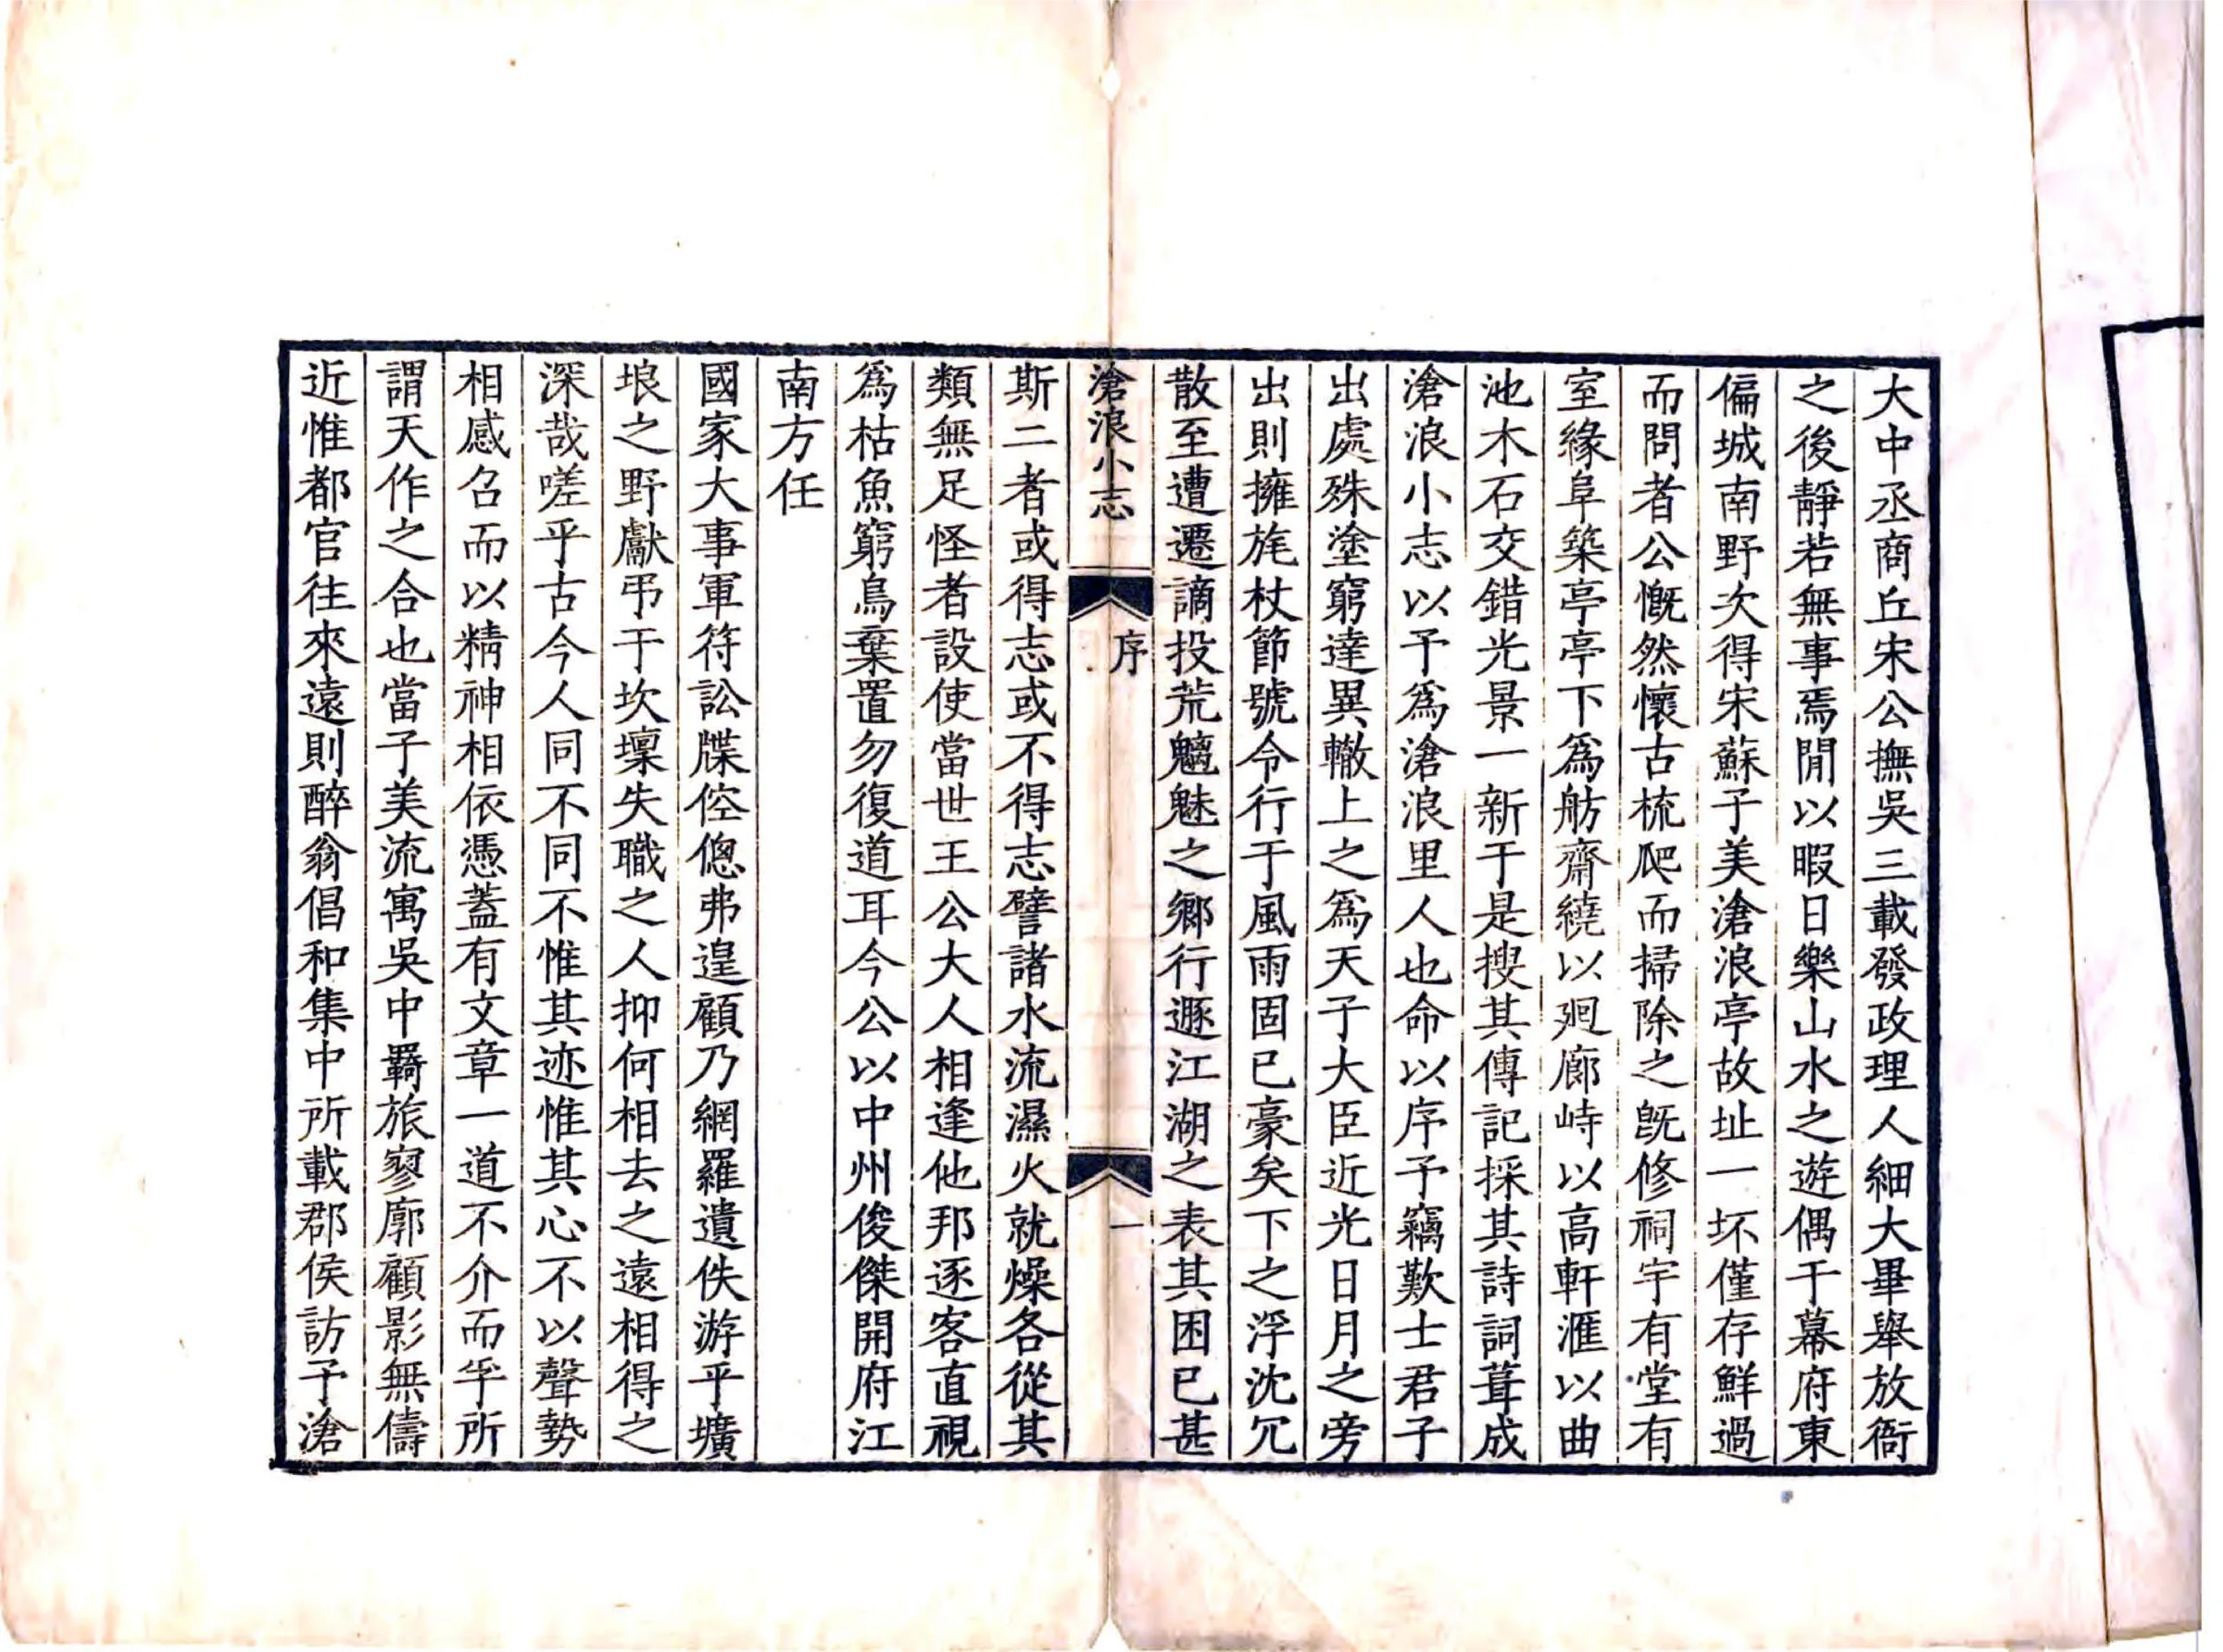 大中丞商丘宋公撫吳三載發政理人細大畢舉放衙
之後靜若無事焉閒以暇日樂山水之遊偶于幕府東
偏城南野次得宋蘇子美滄浪亭故址一坏僅存鮮過
而問者公慨然懷古梳爬而掃除之旣修祠宇有堂有
室緣阜築亭亭下爲舫齋繞以廻廊峙以高軒滙以曲
池木石交錯光景一新于是搜其傳記採其詩詞葺成
滄浪小志以予爲滄浪里人也命以序予竊歎士君子
出處殊塗窮達異轍上之爲天子大臣近光日月之旁
出則擁旄杖節號令行于風雨固已豪矣下之浮沈冗
散至遭遷謫投荒魑魅之鄉行遯江湖之表其困已甚
滄浪小志 序 一
斯二者或得志或不得志譬諸水流濕火就燥各從其
類無足怪者設使當世王公大人相逢他邦逐客直視
爲枯魚窮鳥棄置勿復道耳今公以中州俊傑開府江
南方任
國家大事軍符訟牒倥傯弗遑顧乃網羅遺佚游乎壙
埌之野獻弔于坎壈失職之人抑何相去之遠相得之
深哉嗟乎古今人同不同不惟其迹惟其心不以聲勢
相感召而以精神相依憑蓋有文章一道不介而孚所
謂天作之合也當子美流寓吳中羇旅寥廓顧影無儔
近惟都官往來遠則醉翁倡和集中所載郡侯訪予滄